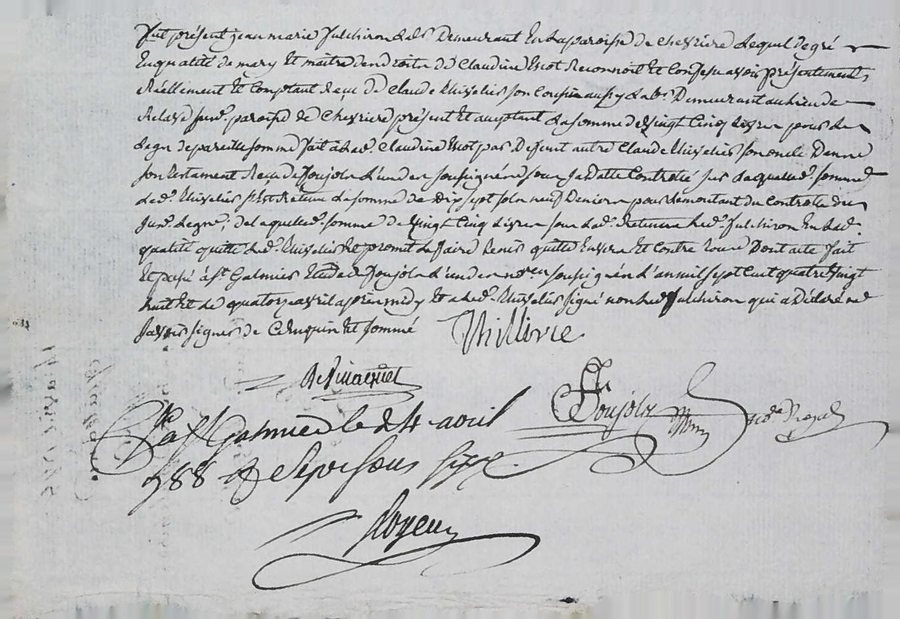 Fut présent jean marie fulchiron labr Demeurant En la paroisse de chevriere Lequel de gré
En qualité de mary Et maitre des droits de Claudine Mot Reconnoit Et Confesse avoir présentement
Réellement Et comptant Reçu de claude Thivelier son Cousin aussy labr Demeurant au lieu de
paroisse de Chevriere présent Et acceptant La somme de vingt cinq Livres pour le
Legs de pareille somme fait à lad. Claudine Mot par Deffunt autre Claude Thivelier son oncle Dans
son testament Reçu de soujols L'un des soussignés sous sa Datte Controllé sur laquelle somme
led. Thivelier s'est Retenu La somme de Dix sept sols neuf Deniers pour le montant du Controlle du
susd. Legs, de laquelle somme de vingt cinq Livres sous lad. Retenue led. fulchiron En lad.
qualité quitte led. Thivelier Et promet de faire tenir quitte Envers Et Contre tous Dont acte fait
Et passé à St. Galmier Etude de soujols L'un des notres soussignés L'an mil sept cent quatre vingt
huit Et le quatorze avril après midy Et a led. Thivelier signé non led. fulchiron qui a Déclaré ne
savoir signer de Ce Enquis Et sommé
Thillivie
Soujols
No.re Royal
Cé à St Galmier le 24 avril
1788 R sept sous six d.
Royeur